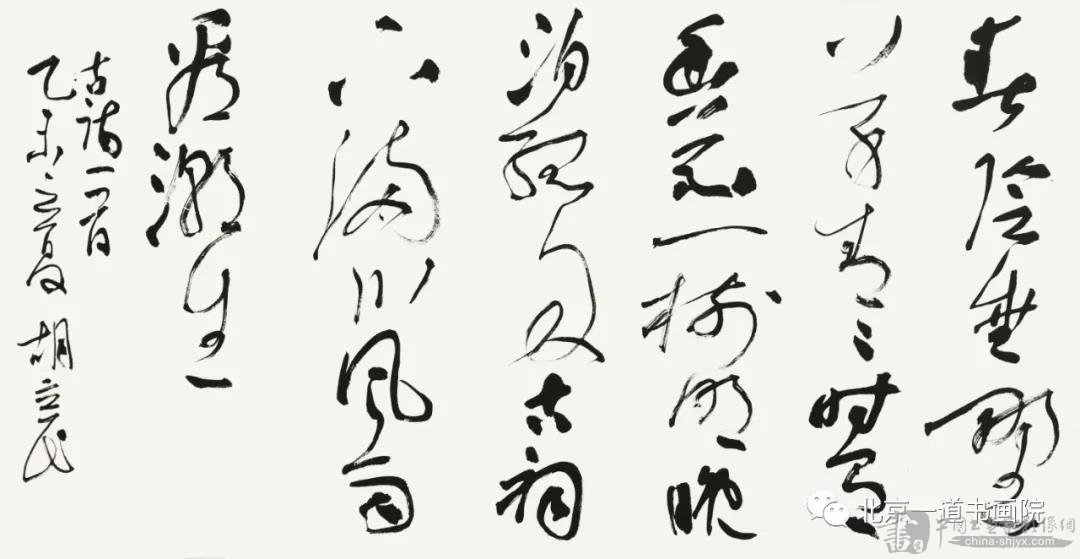 春阴垂野
草青々时有
幽花一树明晚
泊孤舟古祠
下满川风雨
看潮生
古诗一首
乙未立夏 胡立民
北京一道书画院
china-shjyx.com